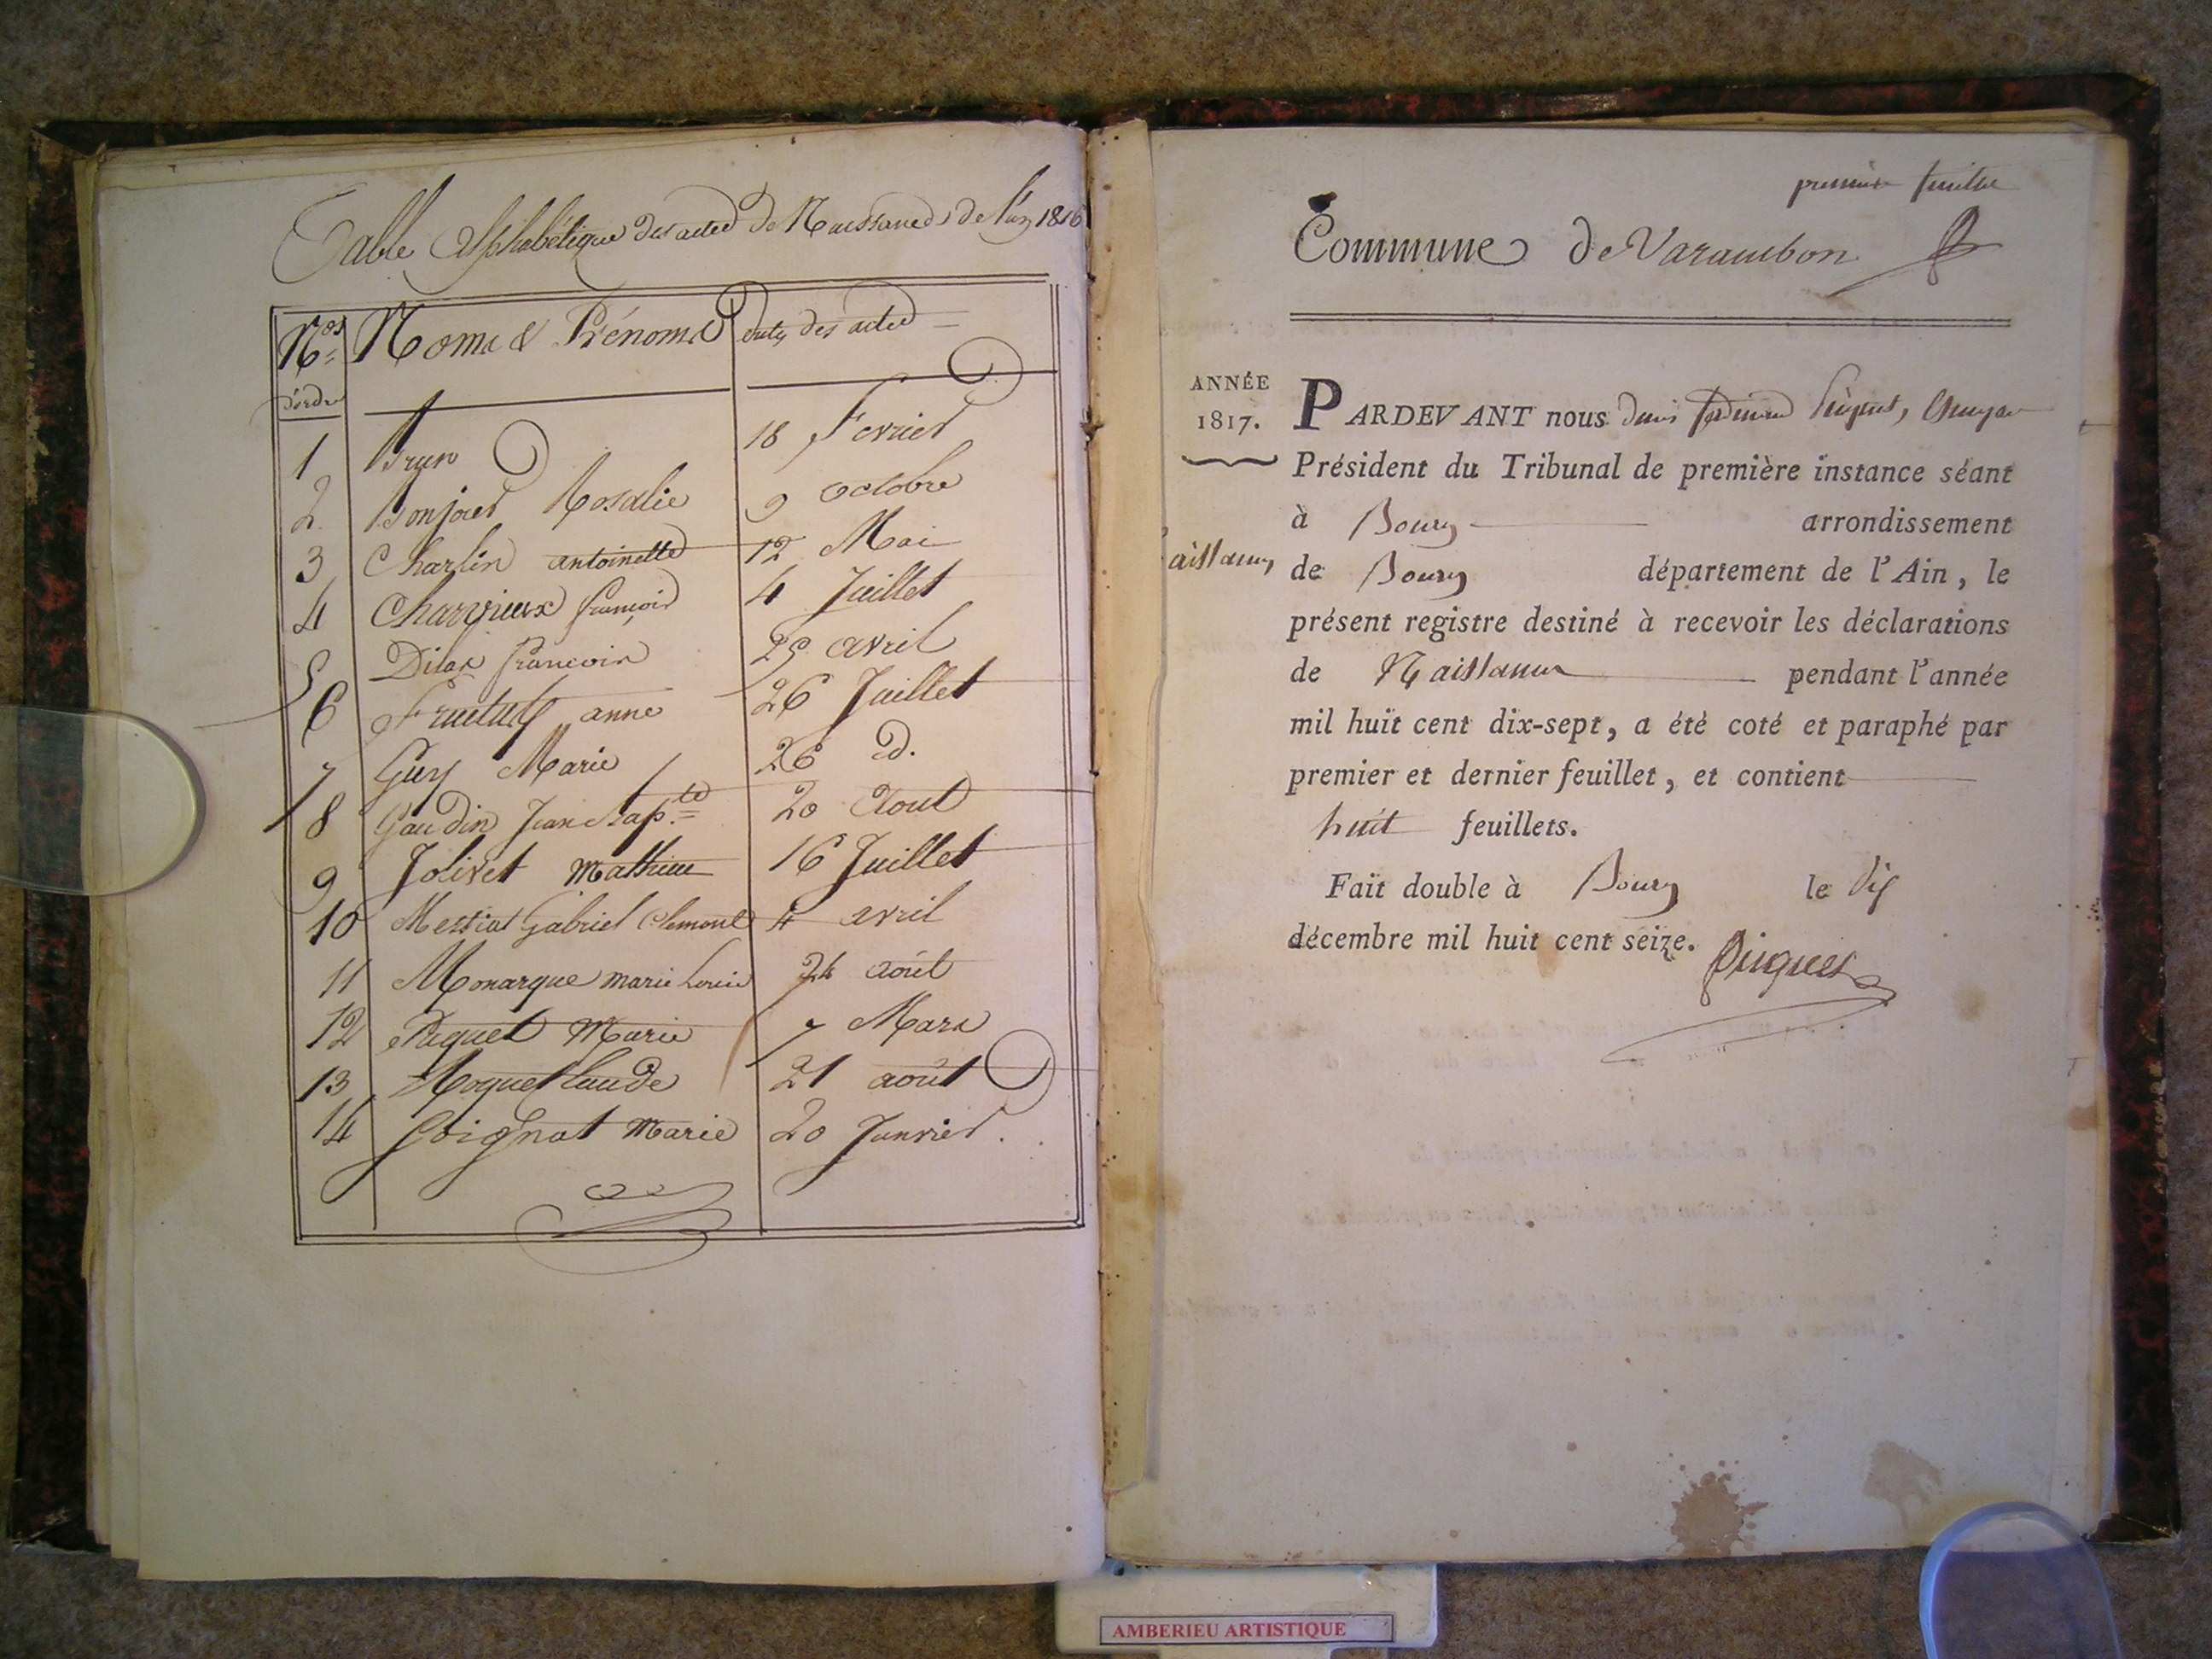 Table Alphabétique des actes de Naissances de l'an 1816
Nos d'ordre Noms & Prénoms date des actes
1 Brun 18 Fevrier
2 Bonjour Rosalie 9 octobre
3 Charlin antoinette 12 Mai
4 Charvieux françois 4 Juillet
5 francois 25 avril
6 anne 26 Juillet
7 Guy Marie 26 d.
8 Gaudin Jean Bapte 20 Aout
9 Jolivet Mathieu 16 Juillet
10 Messiat Gabriel Clement 4 avril
11 Monarque marie Louise 24 août
12 Paquet Marie 7 Mars
13 Claude 21 août
14 Soignat Marie 20 Janvier.
premier feuillet
Commune de Varambon
ANNÉE
1817.
PARDEVANT nous
Président du Tribunal de première instance séant
à Bourg arrondissement
de Bourg département de l'Ain, le
présent registre destiné à recevoir les déclarations
de Naissances pendant l'année
mil huit cent dix-sept, a été coté et paraphé par
premier et dernier feuillet, et contient
huit feuillets.
Fait double à Bourg le dix
décembre mil huit cent seize.
AMBERIEU ARTISTIQUE